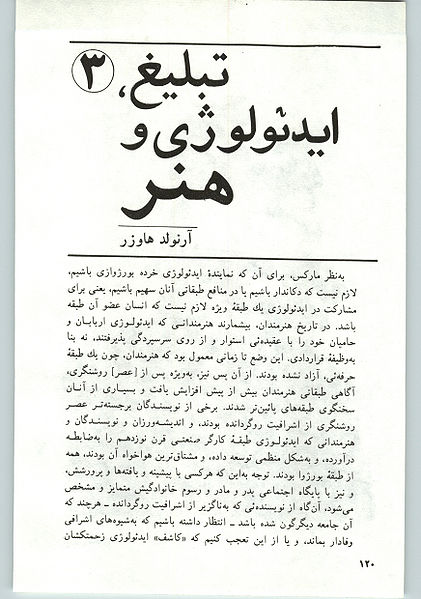 تبلیغ، ۳
ایدئولوژی و
هنر
آرنولد هاوزر
به‌نظر مارکس، برای آن که نمایندهٔ ایدئولوژی خرده بورژوازی باشیم،
لازم نیست که دکاندار باشیم یا در منافع طبقاتی آنان سهیم باشیم، یعنی برای
مشارکت در ایدئولوژی یك طبقهٔ ویژه لازم نیست که انسان عضو آن طبقه
باشد. در تاریخ هنرمندان، بیشمارند هنرمندانی که ایدئولوژی اربابان و
حامیان خود را با عقیده‌ئی استوار و از روی سرسپردگی پذیرفتند، نه بنا
به‌وظیفهٔ قراردادی. این وضع تا زمانی معمول بود که هنرمندان، چون یك طبقهٔ
حرفه‌ئی، آزاد نشده بودند. از آن پس نیز، به‌ویژه پس از [عصر] روشنگری،
آگاهی طبقاتی هنرمندان بیش از پیش افزایش یافت و بسیاری از آنـان
سخنگوی طبقه‌های پائین‌تر شدند. برخی از نویسندگان برجسته‌تر عصر
روشنگری از اشرافیت روگردانده بودند، و اندیشه‌ورزان و نویسندگان و
هنرمندانی که ایدئولوژی طبقهٔ کارگر صنعتی قرن نوزدهم را به‌ضابطه
درآورده، و به‌شکل منظمی توسعه داده، و مشتاق‌ترین هواخواه آن بودند، همه
از طبقهٔ بورژوا بودند. توجه به‌این که هرکسی با پیشینه و یافته‌ها و پرورشش،
و نیز با پایگاه اجتماعی پدر و مادر و رسوم خانوادگیش متمایز و مشخص
می‌شود، آن‌گاه از نویسنده‌ئی که به‌ناگزیر از اشرافیت روگردانده ـ هرچند که
آن جامعه دیگرگون شده باشد ـ انتظار داشته باشیم که به‌شیوه‌های اشرافی
وفادار بماند، و یا از این تعجب کنیم که «کاشف» ایدئولوژی زحمتکشان
۱۲۰